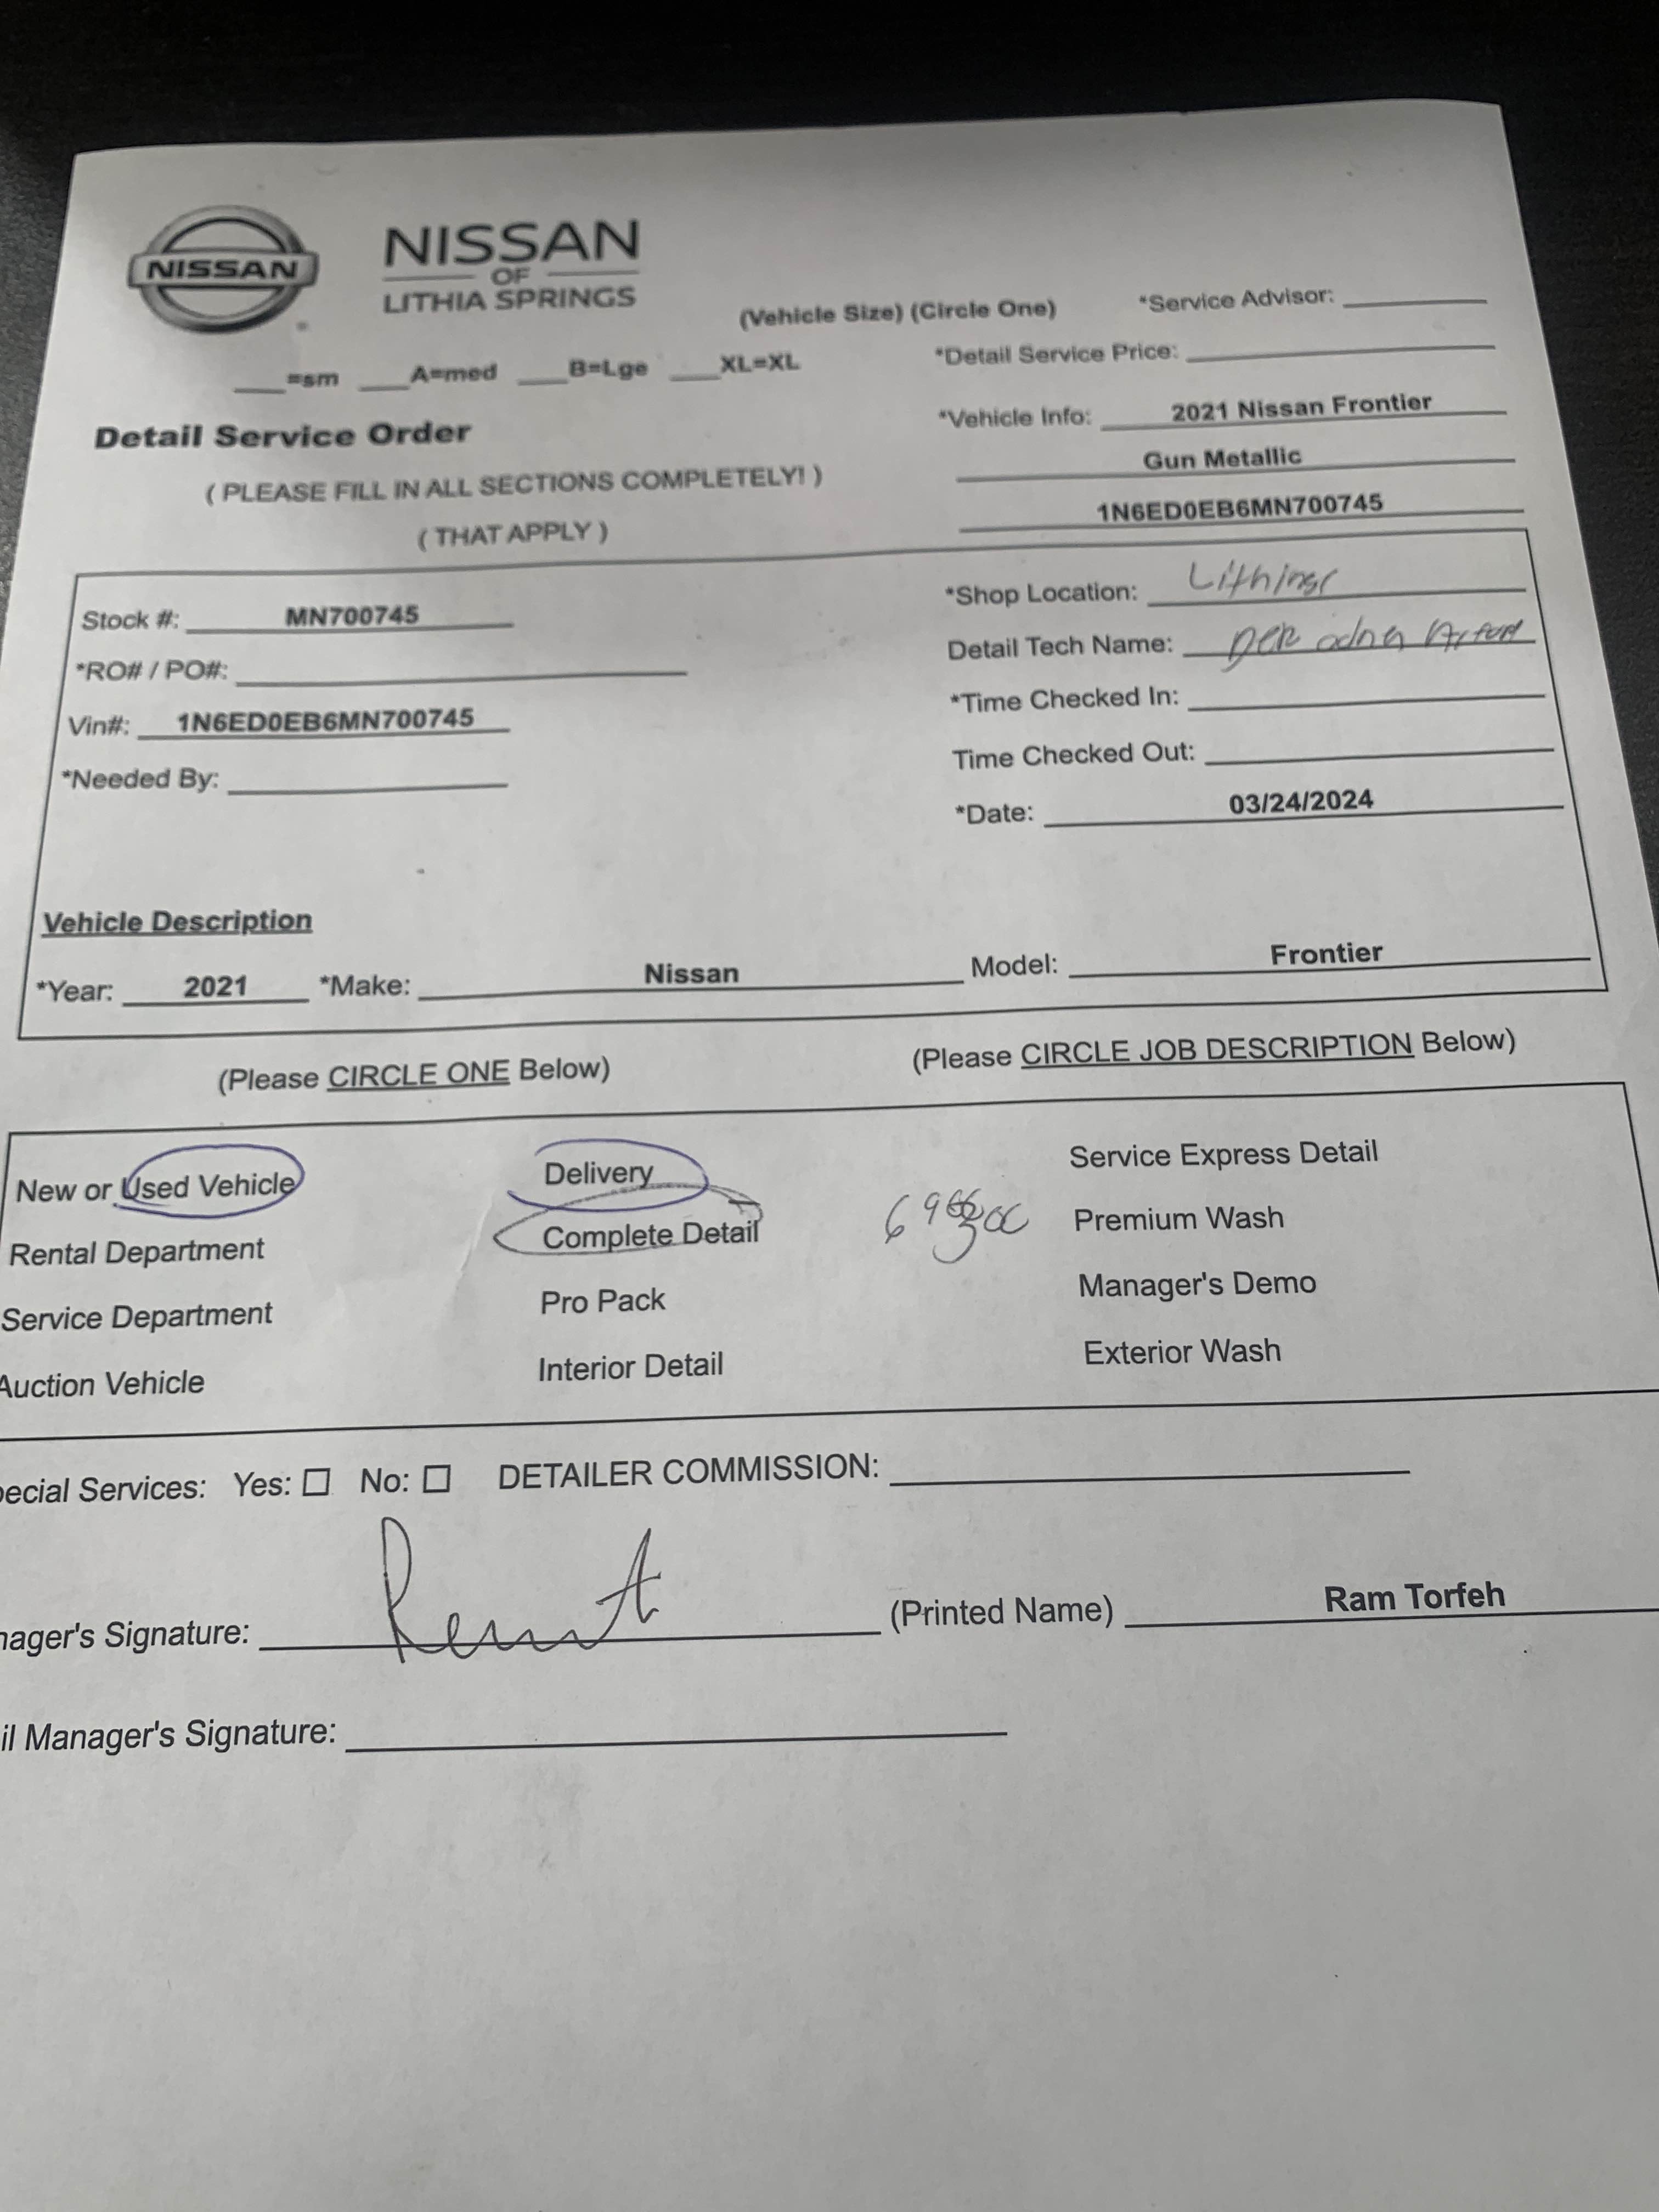 NISSAN
NISSAN
OF
LITHIA SPRINGS
(Vehicle Size) (Circle One)
*Service Advisor:
___=sm ___A=med ___B=Lge ___XL=XL
*Detail Service Price:
Detail Service Order
*Vehicle Info: 2021 Nissan Frontier
( PLEASE FILL IN ALL SECTIONS COMPLETELY! )
Gun Metallic
( THAT APPLY )
1N6ED0EB6MN700745
Stock #: MN700745
*Shop Location:
*RO# / PO#:
Detail Tech Name:
Vin#: 1N6ED0EB6MN700745
*Time Checked In:
*Needed By:
Time Checked Out:
*Date: 03/24/2024
Vehicle Description
*Year: 2021 *Make: Nissan Model: Frontier
(Please CIRCLE ONE Below)
(Please CIRCLE JOB DESCRIPTION Below)
New or Used Vehicle
Delivery
Service Express Detail
Rental Department
Complete Detail
Premium Wash
Service Department
Pro Pack
Manager's Demo
Auction Vehicle
Interior Detail
Exterior Wash
pecial Services: Yes: No: DETAILER COMMISSION:
nager's Signature: (Printed Name) Ram Torfeh
il Manager's Signature: